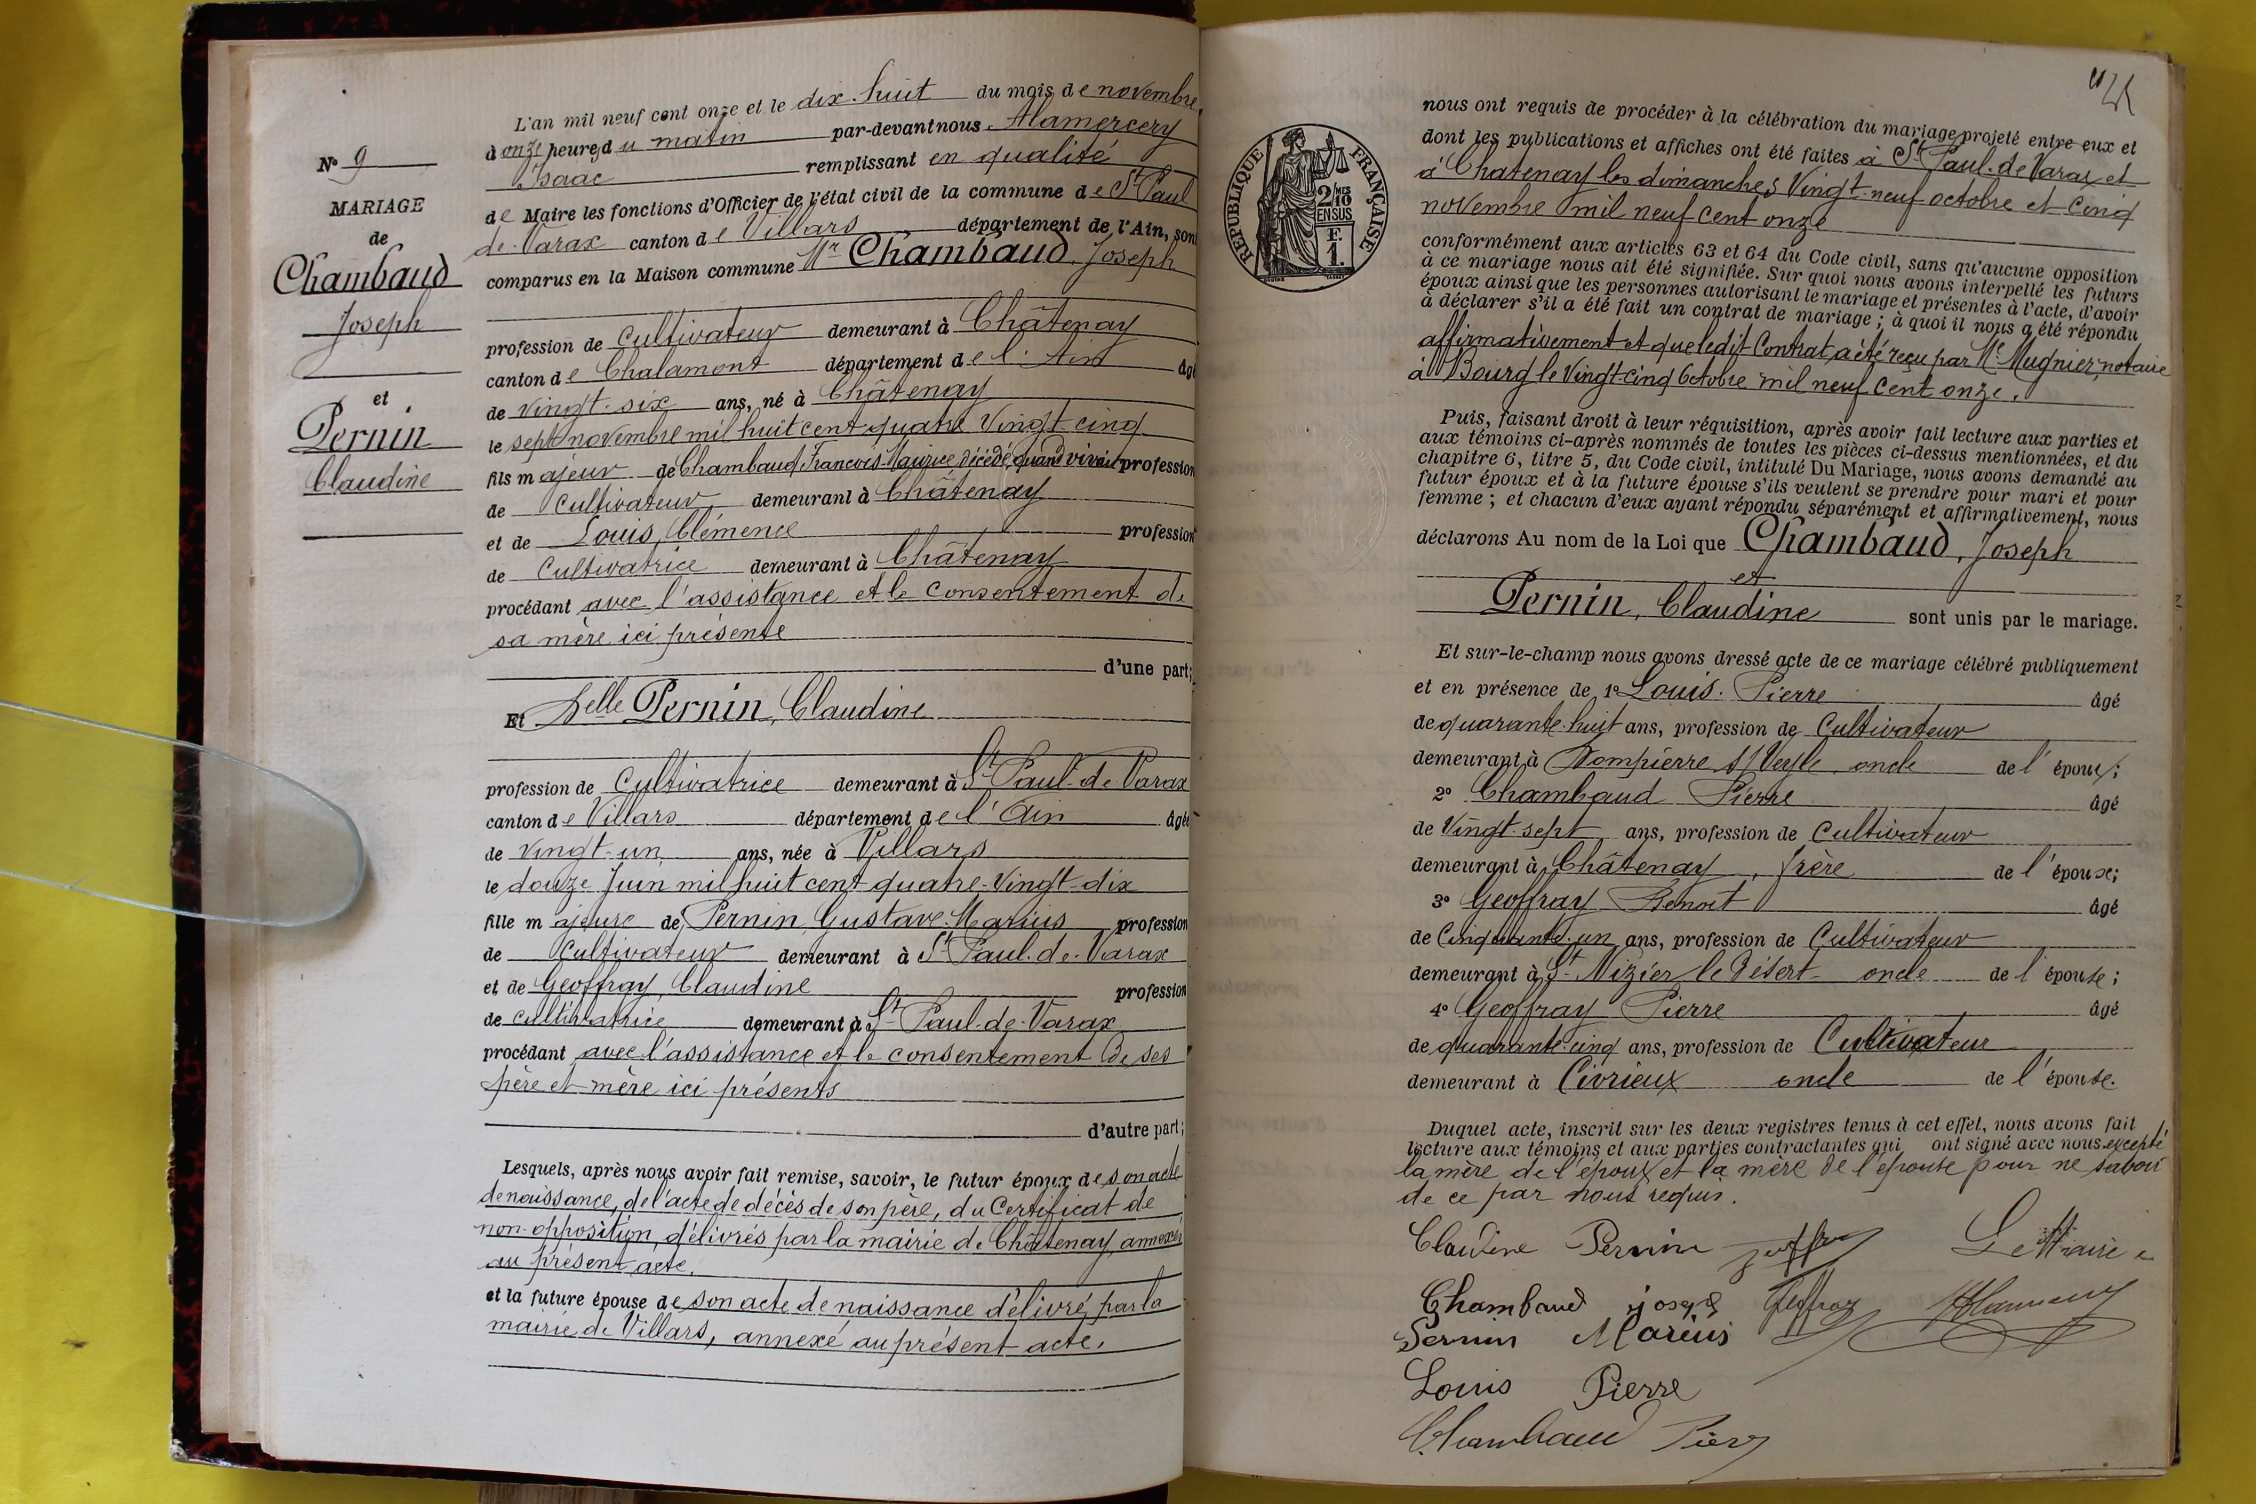 N° 9
MARIAGE
de
Chambaud
Joseph
et
Pernin
Claudine
L'an mil neuf cent onze et le dix-huit du mois de novembre
à onze heures du matin par-devant nous Alamercery
Isaac remplissant en qualité
de Maire les fonctions d'Officier de l'état civil de la commune de St Paul
de-Varax canton de Villars département de l'Ain, sont
comparus en la Maison commune Mr Chambaud, Joseph
profession de Cultivateur demeurant à Châtenay
canton de Chalamont département de l'Ain âgé
de vingt-six ans, né à Châtenay
le sept novembre mil huit cent quatre Vingt cinq
fils majeur de Chambaud, François-Maurice, décédé, quand vivait profession
de Cultivateur demeurant à Châtenay
et de Louis, Clémence profession
de Cultivatrice demeurant à Châtenay
procédant avec l'assistance et le consentement de
sa mère ici présente
d'une part;
Et Delle Pernin, Claudine
profession de Cultivatrice demeurant à St Paul-de-Varax
canton de Villars département de l'Ain âgée
de vingt-un ans, née à Villars
le douze Juin mil huit cent quatre-Vingt-dix
fille majeure de Pernin, Gustave-Marius profession
de Cultivateur demeurant à St Paul-de-Varax
et de Geoffray, Claudine profession
de cultivatrice demeurant à St Paul-de-Varax
procédant avec l'assistance et le consentement de ses
père et mère ici présents
d'autre part;
Lesquels, après nous avoir fait remise, savoir, le futur époux de son acte
de naissance, de l'acte de décès de son père, du Certificat de
non-opposition, délivrés par la mairie de Châtenay, annexés
au présent acte.
et la future épouse de son acte de naissance délivré par la
mairie de Villars, annexé au présent acte.
RÉPUBLIQUE FRANÇAISE
2/10 MES
EN SUS
F.
1.
nous ont requis de procéder à la célébration du mariage projeté entre eux et
dont les publications et affiches ont été faites à St Paul-de-Varax et
à Chatenay les dimanches Vingt-neuf octobre et Cinq
novembre mil neuf cent onze
conformément aux articles 63 et 64 du Code civil, sans qu'aucune opposition
à ce mariage nous ait été signifiée. Sur quoi nous avons interpellé les futurs
époux ainsi que les personnes autorisant le mariage et présentes à l'acte, d'avoir
à déclarer s'il a été fait un contrat de mariage ; à quoi il nous a été répondu
affirmativement et que ledit Contrat a été reçu par Me Mugnier, notaire
à Bourg le Vingt-cinq Octobre mil neuf cent onze.
Puis, faisant droit à leur réquisition, après avoir fait lecture aux parties et
aux témoins ci-après nommés de toutes les pièces ci-dessus mentionnées, et du
chapitre 6, titre 5, du Code civil, intitulé Du Mariage, nous avons demandé au
futur époux et à la future épouse s'ils veulent se prendre pour mari et pour
femme ; et chacun d'eux ayant répondu séparément et affirmativement, nous
déclarons Au nom de la Loi que Chambaud, Joseph
et
Pernin, Claudine sont unis par le mariage.
Et sur-le-champ nous avons dressé acte de ce mariage célébré publiquement
et en présence de 1° Louis Pierre âgé
de quarante-huit ans, profession de Cultivateur
demeurant à Dompierre s/ Veyle oncle de l'époux;
2° Chambaud Pierre âgé
de Vingt-sept ans, profession de Cultivateur
demeurant à Châtenay, frère de l'époux;
3° Geoffray Benoît âgé
de Cinquante-un ans, profession de Cultivateur
demeurant à St Nizier le Désert oncle de l'épouse;
4° Geoffray Pierre âgé
de quarante-cinq ans, profession de Cultivateur
demeurant à Civrieux oncle de l'épouse.
Duquel acte, inscrit sur les deux registres tenus à cet effet, nous avons fait
lecture aux témoins et aux parties contractantes qui ont signé avec nous excepté
la mère de l'époux et la mère de l'épouse pour ne savoir
de ce par nous requis.
Claudine Pernin Le Maire
Chambaud joseph Geffray
Pernin Marius
Louis Pierre
Chambaud Pierre